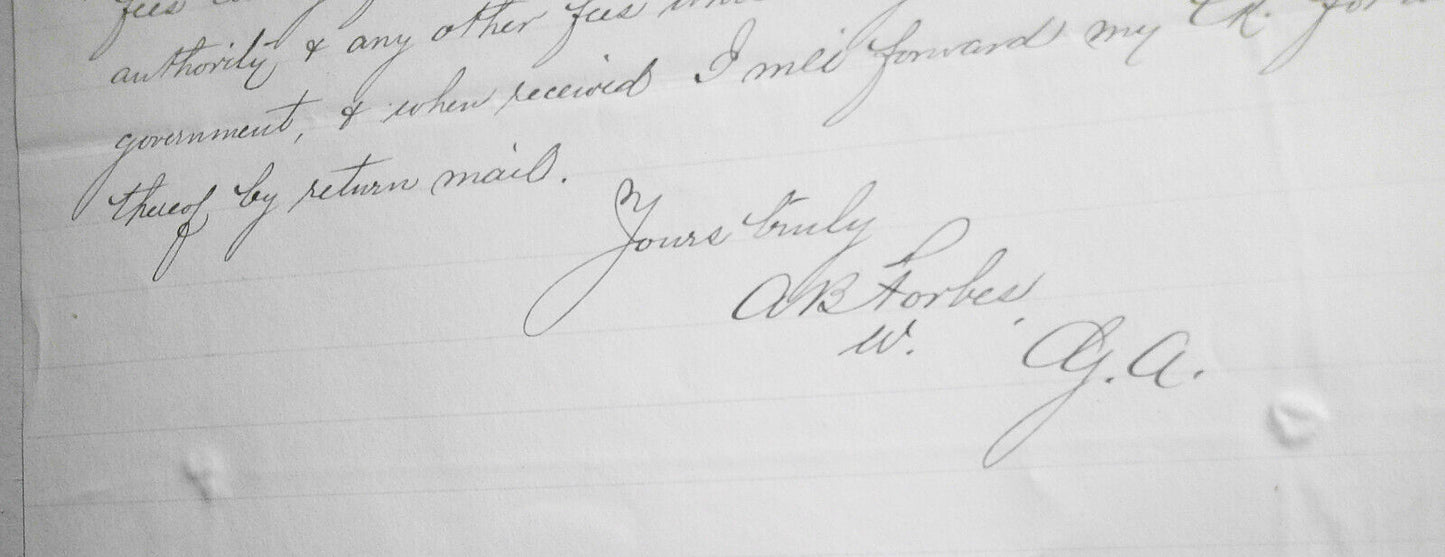 fees
authority & any other fees
government, & when received I will forward my Ck. for
thereof by return mail.
Yours truly
A B Forbes,
W.
G. A.